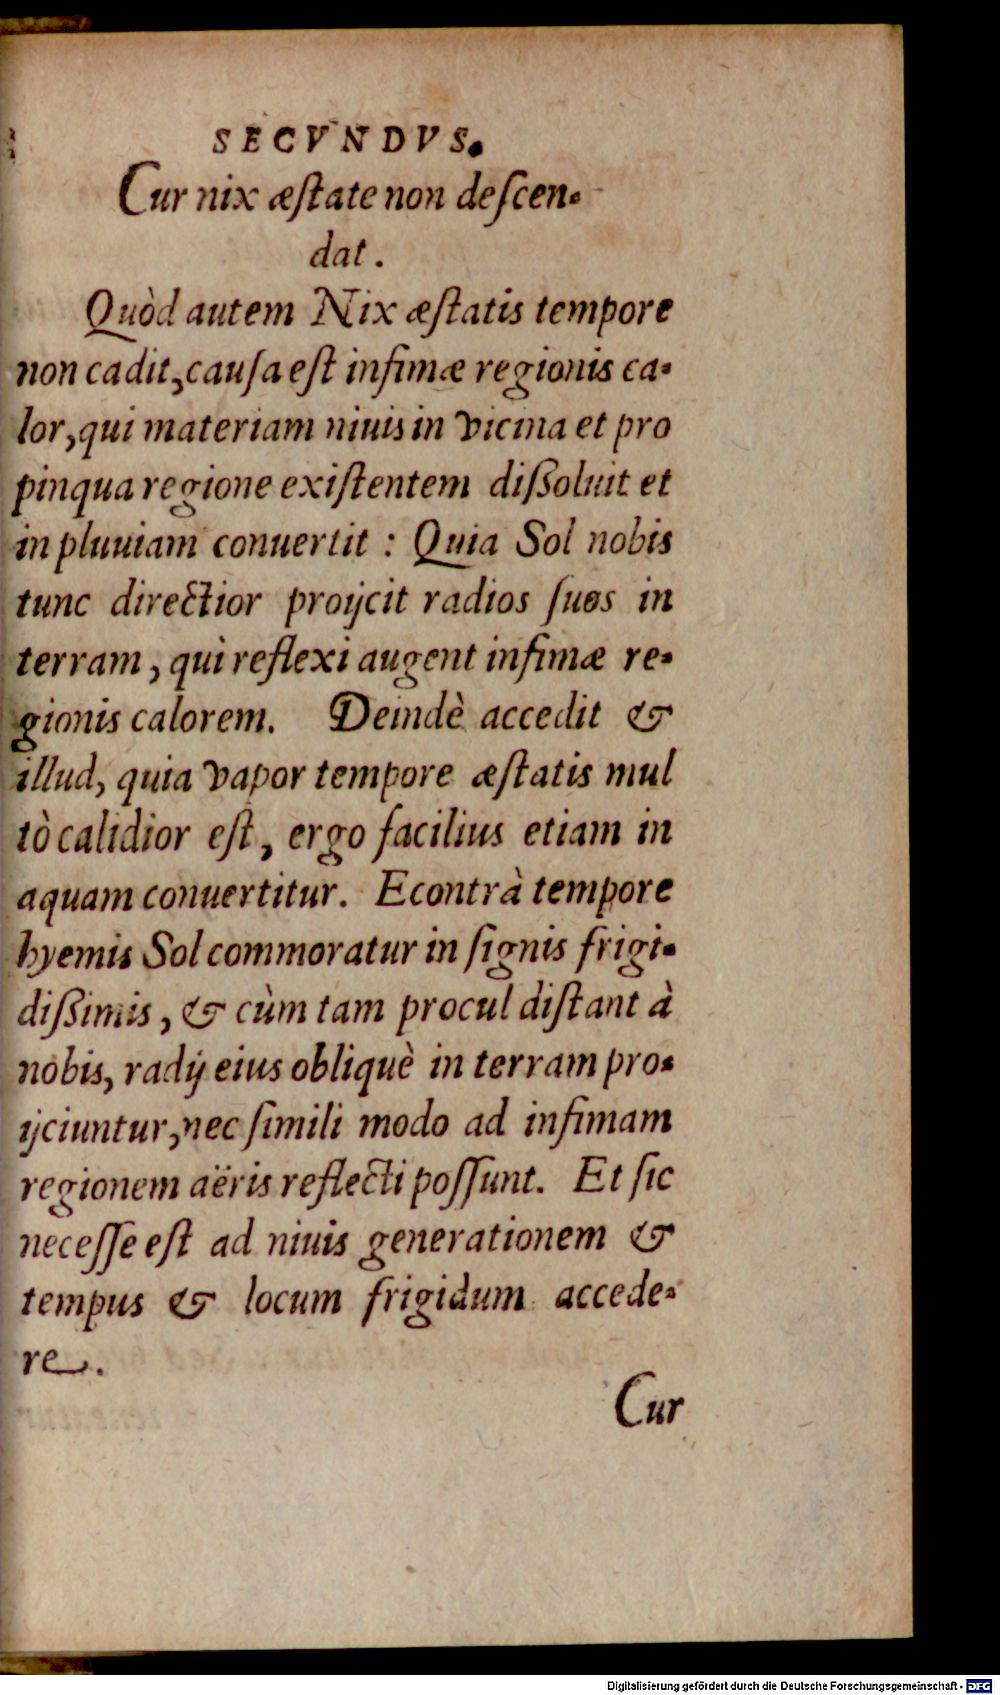 SECVNDVS.
Cur nix æſtate non deſcen-
dat.
Quòd autem Nix æſtatis tempore
non cadit, cauſa eſt infimæ regionis ca-
lor, qui materiam niuis in vicina et pro
pinqua regione exiſtentem dißoluit et
in pluuiam conuertit : Quia Sol nobis
tunc directior proijcit radios ſuos in
terram, qui reflexi augent infimæ re-
gionis calorem. Deindè accedit &
illud, quia vapor tempore æſtatis mul
tò calidior eſt, ergo facilius etiam in
aquam conuertitur. Econtrà tempore
hyemis Sol commoratur in ſignis frigi-
dißimis, & cùm tam procul diſtant à
nobis, radij eius obliquè in terram pro-
ijciuntur, nec ſimili modo ad infimam
regionem aëris reflecti poſſunt. Et ſic
neceſſe eſt ad niuis generationem &
tempus & locum frigidum accede-
re.
Cur
Digitalisierung gefördert durch die Deutsche Forschungsgemeinschaft - DFG